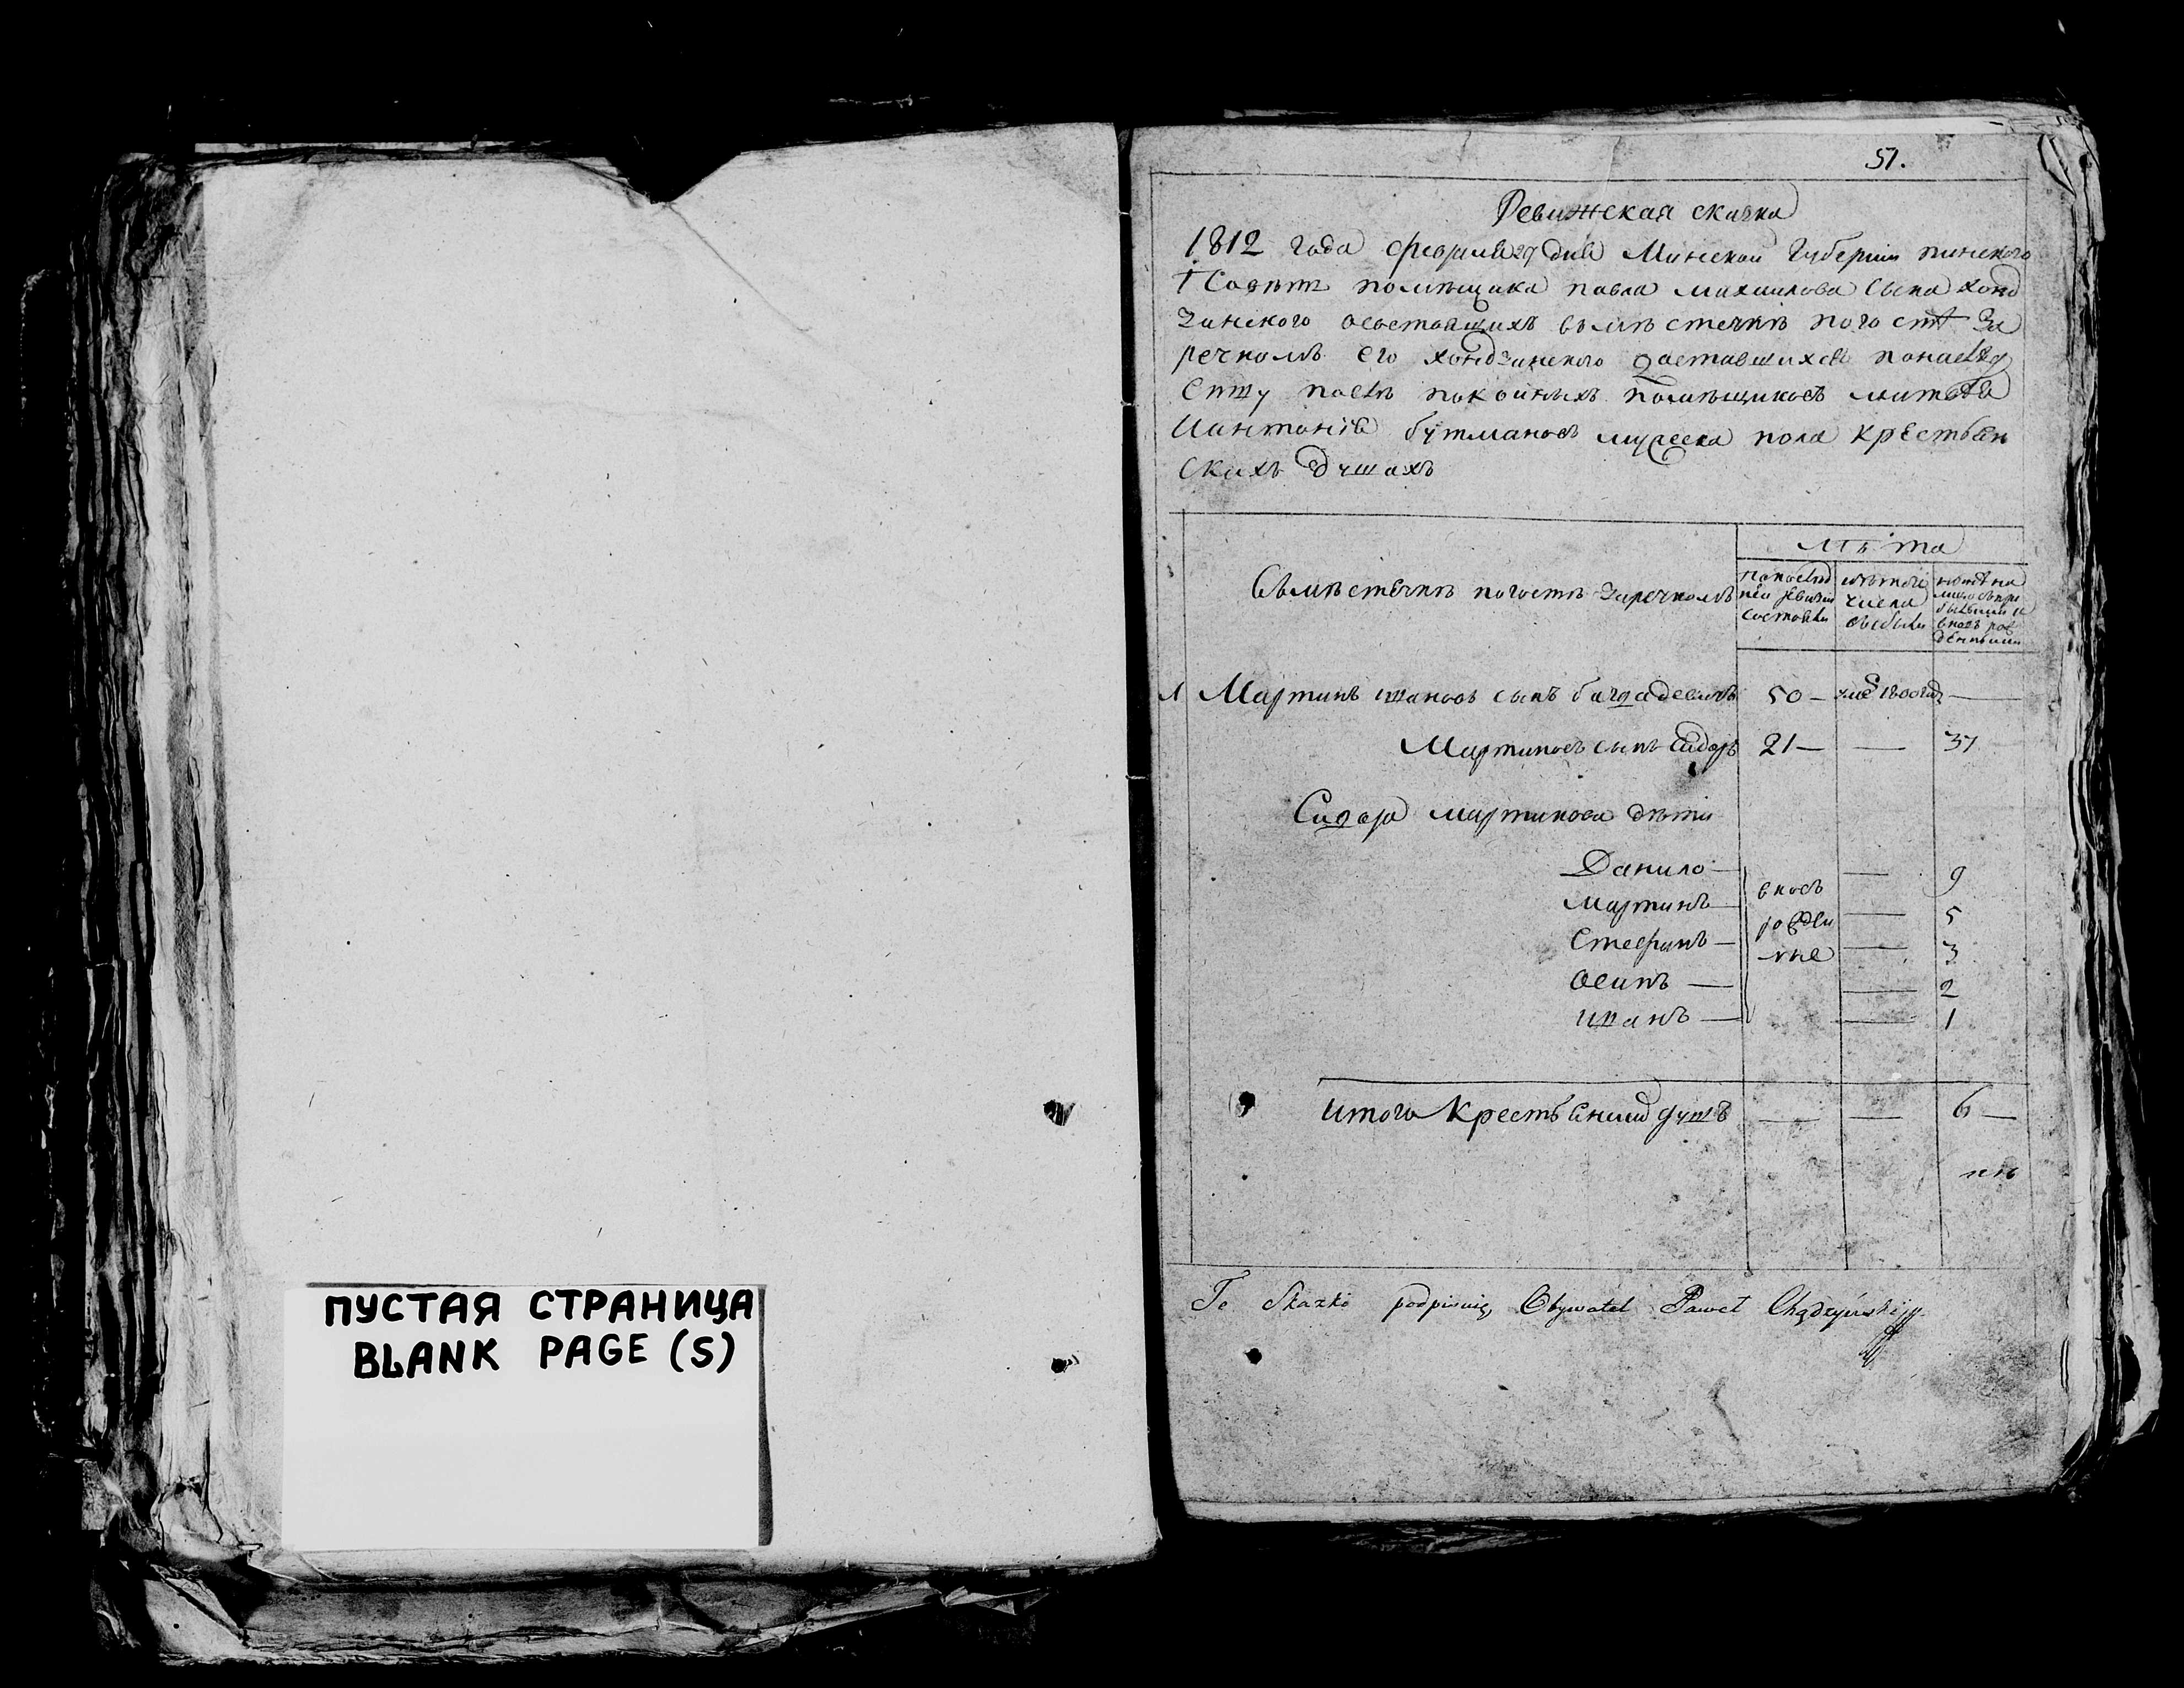 ПУСТАЯ СТРАНИЦА
BLANK PAGE (S)
51.
Ревижская скаска
1812 года февраля 27 дня Минской Губернии пинского
помещика павла михаилова сына хонд
зинского осостоящихъ вълѣ стечкѣ погостѣ За
речномъ его хондзинского доставшихся понаслед
ству послѣ покойныхъ помѣщиковъ
Иантонія бутмановъ мужеска пола крестьян
скихъ душахъ
лѣта
вълѣстечкѣ погостѣ заречномъ
попослед
ней ревизіи
состояли
изътого
числа
выбыли
ныне на
вновь рож
денными
1 Мартинъ ивановъ сынъ 50 — умре 1800 год —
Мартиновъ сынъ Сидоръ 21 — — 31
Сидора мартинова дѣти
Данило — — 9
вновь
Мартинъ — — 5
рожден
Стефанъ — — 3
ные
Осипъ — — 2
иванъ — — 1
итого крестьянъ душъ — — 6 —
Te Skazke podpisuię Obywatel Paweł Chądzyński